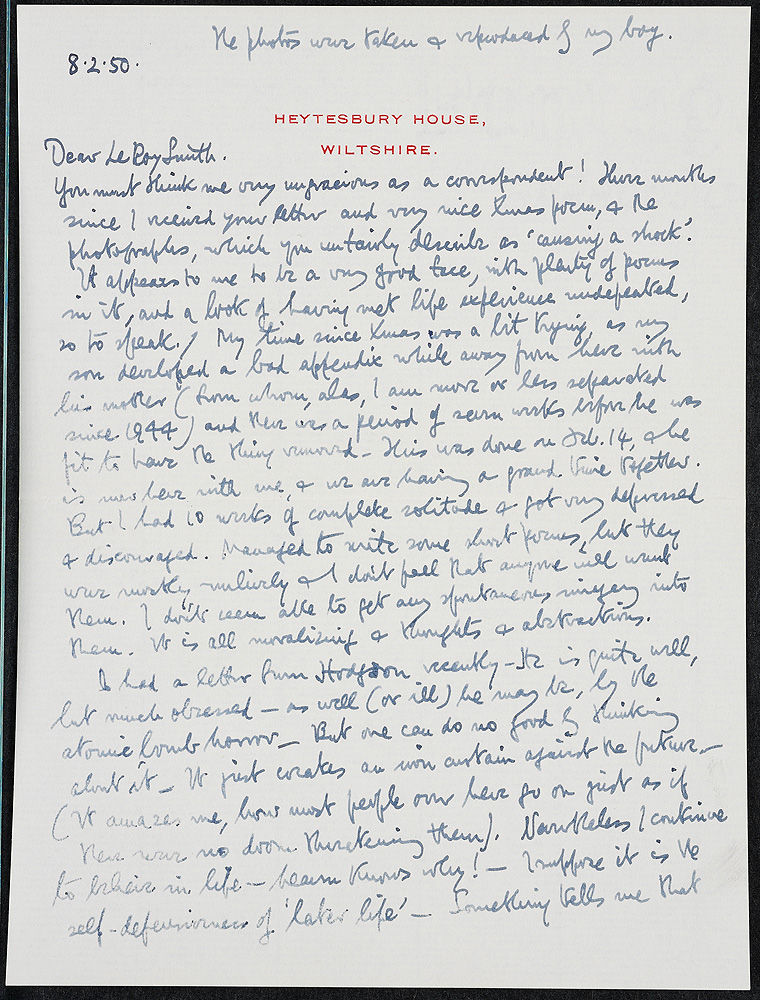 The photos were taken & reproduced by my boy.
8.2.50.
HEYTESBURY HOUSE,
WILTSHIRE.
Dear LeRoy Smith.
You must think me very ungracious as a correspondent! Three months
since I received your letter and very nice Xmas poem, & the
photographs, which you unfairly describe as 'causing a shock'.
It appears to me to be a very good face, with plenty of poems
in it, and a look of having met life experience undefeated,
so to speak. / My time since Xmas was a bit trying, as my
son developed a bad appendix while away from here with
his mother (from whom, alas, I am more or less separated
since 1944) and there was a period of seven weeks before he was
fit to have the thing removed – This was done on Feb. 14, & he
is now here with me, & we are having a grand time together.
But I had 10 weeks of complete solitude & got very depressed
& discouraged. Managed to write some short poems, but they
were mostly unlively & I don't feel that anyone will want
them. I don't seem able to get any spontaneous imagery into
them. It is all moralizing & thoughts & abstractions.
I had a letter from Hodgson recently – He is quite well,
but much obsessed – as well (or ill) he may be, by the
atomic bomb horror – But one can do no good by thinking
about it – It just creates an iron curtain against the future –
(It amazes me, how most people over here go on just as if
there were no doom threatening them). Nevertheless I continue
to believe in life – heaven knows why! – I suppose it is the
self-defensiveness of 'later life' – Something tells me that